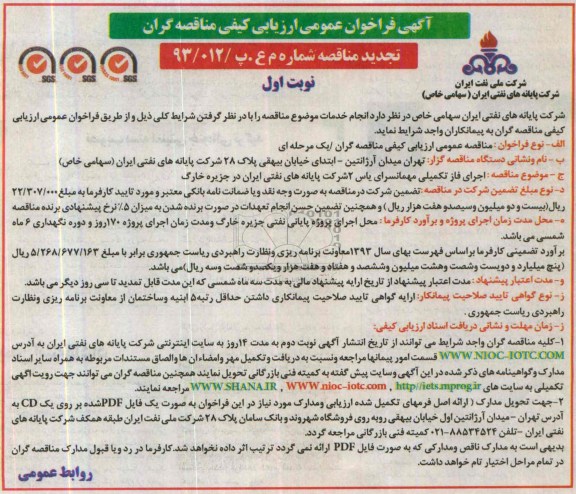 آگهی فراخوان عمومی ارزیابی کیفی مناقصه گران
تجدید مناقصه شماره م ع.پ/۹۳/۰۱۲
نوبت اول
شرکت ملی نفت ایران
شرکت پایانه های نفتی ایران (سهامی خاص)
SGS SGS SGS
شرکت پایانه های نفتی ایران سهامی خاص در نظر دارد انجام خدمات موضوع مناقصه را با در نظر گرفتن شرایط کلی ذیل و از طریق فراخوان عمومی ارزیابی
کیفی مناقصه گران به پیمانکاران واجد شرایط نماید.
الف- نوع فراخوان: مناقصه عمومی ارزیابی کیفی مناقصه گران /یک مرحله ای
ب- نام ونشانی دستگاه مناقصه گزار: تهران میدان آرژانتین - ابتدای خیابان بیهقی پلاک ۲۸ شرکت پایانه های نفتی ایران (سهامی خاص)
ج - موضوع مناقصه: اجرای فاز تکمیلی مهمانسرای یاس ۲شرکت پایانه های نفتی ایران در جزیره خارگ
د- نوع مبلغ تضمین شرکت در مناقصه: تضمین شرکت درمناقصه به صورت وجه نقد ویا ضمانت نامه بانکی معتبر و مورد تایید کارفرما به مبلغ ۲۲/۳۰۷/۰۰۰
ریال(بیست و دو میلیون وسیصدو هفت هزار ریال) و همچنین تضمین حسن انجام تعهدات در صورت برنده شدن به میزان ۵٪نرخ پیشنهادی برنده مناقصه
ه- محل مدت زمان اجرای پروژه و برآورد کارفرما : محل اجرای پروژه پایانی نفتی جزیره خارگ ومدت زمان اجرای پروژه ۱۷۰روز و دوره نگهداری ۶ ماه
شمسی می باشد.
برآورد تضمینی کارفرما براساس فهرست بهای سال ۱۳۹۳معاونت برنامه ریزی ونظارت راهبردی ریاست جمهوری برابر با مبلغ ۵/۲۶۸/۶۷۷/۱۶۳ ریال
(پنج میلیارد و دویست وشصت وهشت میلیون وششصد و هفتاد و هفت هزار ویکصدو شصت وسه ریال)می باشد.
و- مدت اعتبار پیشنهاد : مدت اعتبار پیشنهاد از تاریخ ارایه پیشنهاد مالی به مدت سه ماه شمسی که این مدت قابل تمدید تا سی روز دیگر می باشد.
ز- نوع گواهی تایید صلاحیت پیمانکار: ارایه گواهی تایید صلاحیت پیمانکاری داشتن حداقل رتبه۵ ابنیه وساختمان از معاونت برنامه ریزی ونظارت
راهبردی ریاست جمهوری .
ز- زمان مهلت و نشانی دریافت اسناد ارزیابی کیفی:
۱-کلیه مناقصه گران واجد شرایط می توانند از تاریخ انتشار آگهی نوبت دوم به مدت ۱۴روز به سایت اینترنتی شرکت پایانه های نفتی ایران به آدرس
WWW.NIOC-IOTC.COM قسمت امور پیمانها مراجعه ونسبت به دریافت و تکمیل مهر وامضاء آن ها والصاق مستندات مربوطه به همراه سایر اسناد
مدارک وگواهینامه های ذکر شده در این آگهی وسایت پیش گفته به کمیته فنی بازرگانی تحویل نمایند همچنین مناقصه گران می توانند جهت رویت آگهی
تکمیلی به سایت های WWW.SHANA.IR , WWW.nioc-iotc.com , http//iets.mporg.ir مراجعه نمایند.
۲-جهت تحویل مدارک (ارائه اصل فرمهای تکمیل شده ارزیابی ومدارک مورد نیاز در این فراخوان به صورت یک فایل PDFشده بر روی یک CD به
آدرس تهران -میدان آرژانتین اول خیابان بیهقی روبه روی فروشگاه شهروند و بانک سامان پلاک ۲۸ شرکت ملی نفت ایران طبقه همکف شرکت پایانه های
نفتی ایران -تلفن ۸۸۵۳۴۵۲۴-۰۲۱ کمیته فنی بازرگانی مراجعه گردد.
بدیهی است به مدارک ناقص ومدارکی که به صورت فایل PDF ارائه نمی گردد ترتیب اثر داده نخواهد شد.کارفرما در رد ویا قبول مدارک مناقصه گران
در تمام مراحل اختیار تام خواهد داشت.
روابط عمومی